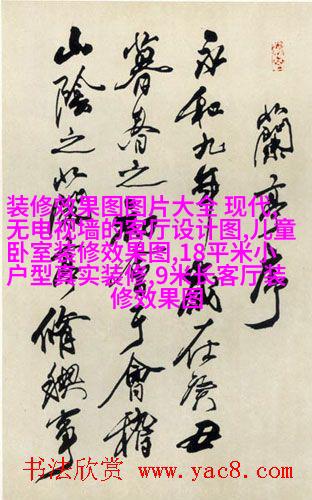 蘭亭序
永和九年歲在癸丑
暮春之初會于會稽
山陰之蘭亭脩禊事
装修效果图图片大全 现代,
无电视墙的客厅设计图,儿童
卧室装修效果图,18平米小
户型真实装修,9米长客厅装
修效果图
书法欣赏 www.yac8.com